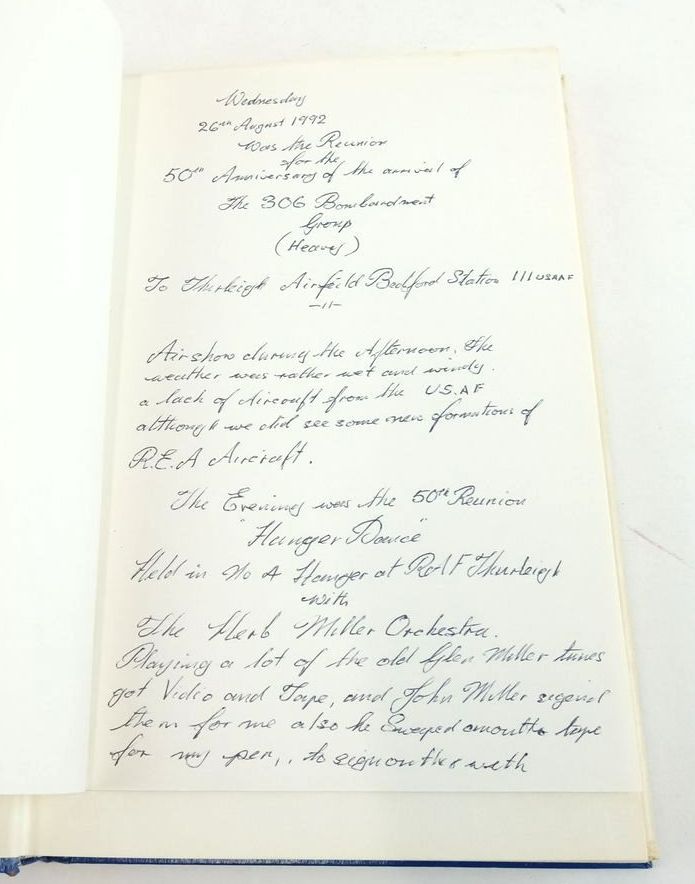 Wednesday
26th August 1992
Was the Reunion
for the
50th Anniversary of the arrival of
The 306 Bombardment
Group
(Heavy)
To Thurleigh Airfeild Bedford Station 111 USAAF
—11—
Airshow during the Afternoon. The
weather was rather wet and windy.
a lack of Aircraft from the U.S.AF
although we did see some new formations of
R.E.A Aircraft.
The Evening was the 50th Reunion
"Hanger Dance"
Held in No 4 Hanger at RAF Thurleigh
with
The Herb Miller Orchestra.
Playing a lot of the old Glen Miller tunes
got Video and Tape, and John Miller signed
them for me also he Swaped tape
for my pen,. to sign with